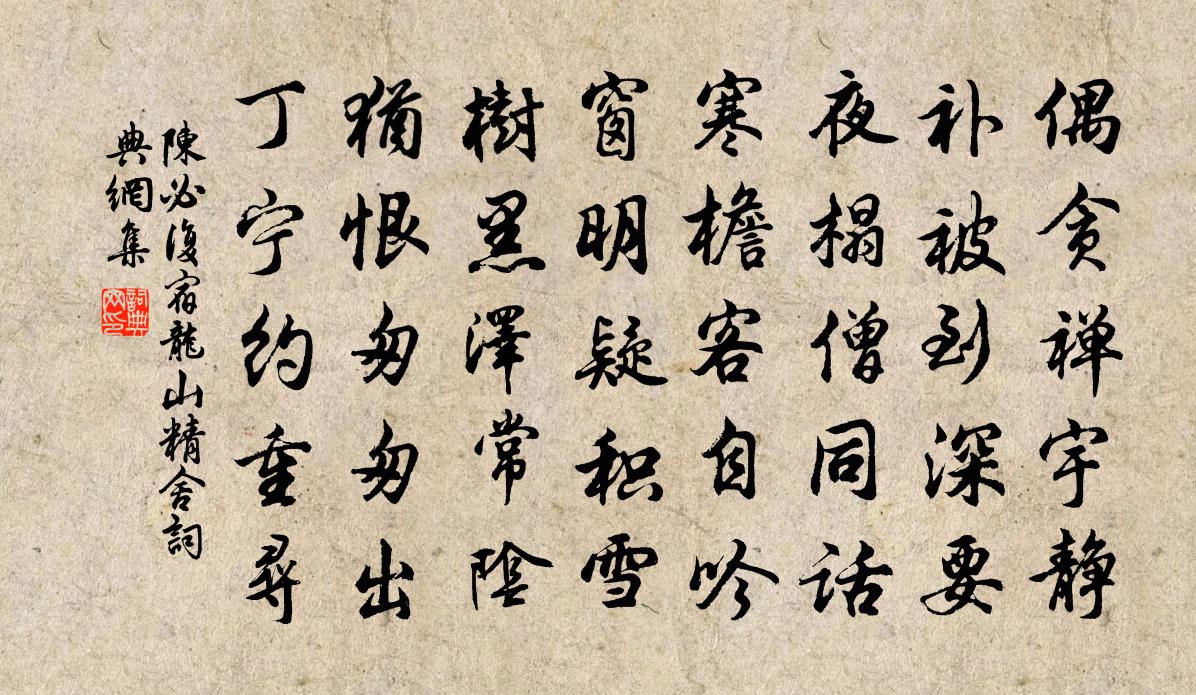 偶贪禅宇静
补被到深要
夜榻僧同话
寒檐客自吟
窗明疑积雪
樹黑澤常陰
猶恨匆匆出
丁宁约重尋
陳必復宿龍山精舍詞
典網集
詞典
网印